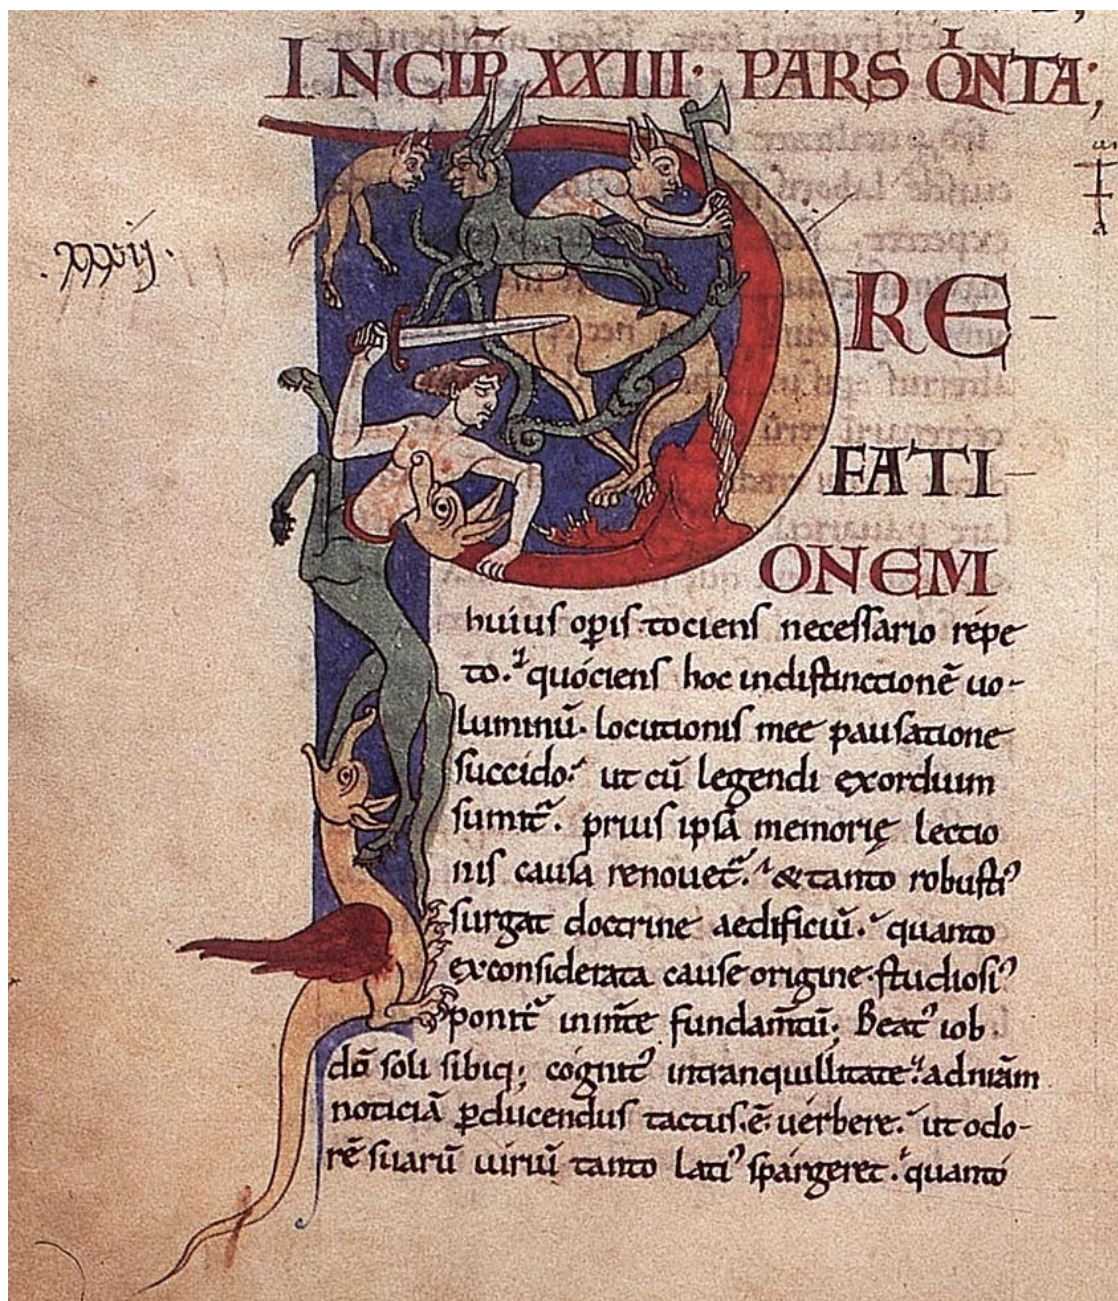 INCIP̃ XXIII· PARS QͥNTA;
·xxxvij·
P RE
FATI
ONEM
huius op̲is tociens necessario repe
to. quociens hoc indistinctionē uo-
luminū. locutionis mee pausatione
succido. ut cū legendi exordium
sumit᷑. prius ipsā memorię lectio
nis causa renouet᷑. & tanto robusti᾽
surgat doctrine aedificiū. quanto
exconsiderata cause origine studiosi᾽
ponit᷑ inm̄te fundam̄tū; Beat᾽ iob
dō soli sibiq; cognit᾽ intranquillitate. adnr̄am
noticiā ꝑducendus tactus.ē. uerbere. ut odo-
rē suarū uiriū tanto lati᾽ spargeret. quanto